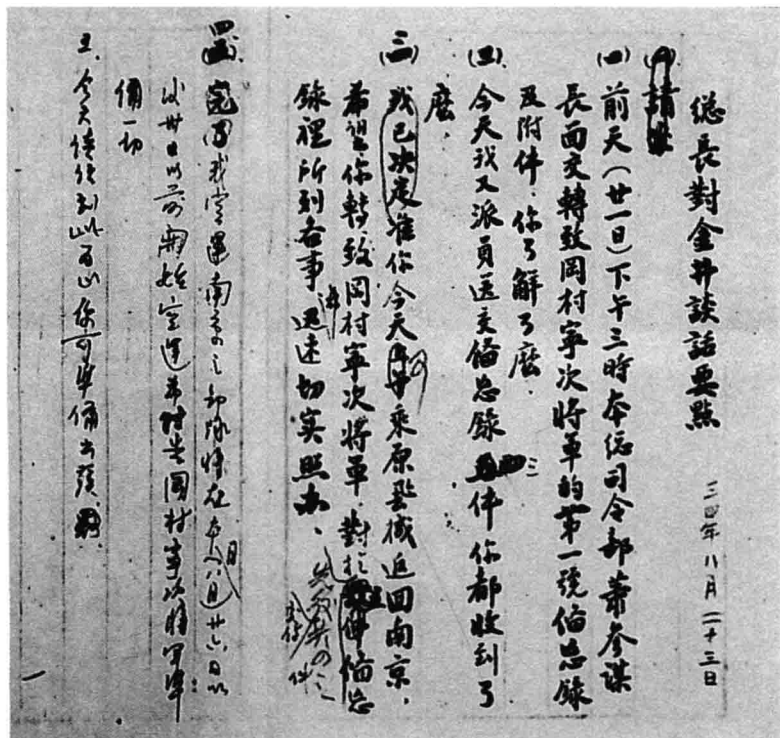 總長對金井談話要點
三四年八月二十三日
(一)前天(廿一日)下午三時本總司令部蕭參謀
長面交轉致岡村寧次將軍的第一號備忘錄
及附件,你了解了麼.
(二)今天我又派員送交備忘錄三件你都收到了
麼.
(三)我已決定准你今天乘原飛機返回南京,
希望你轉致岡村寧次將軍,對於備忘
錄裡所列各事迅速切实照办、
我空運南京之部隊將在八月廿六日以
後卅日以前開始空運希轉告岡村寧次將軍準
備一切
五、今天談話到此為止你可準備出發